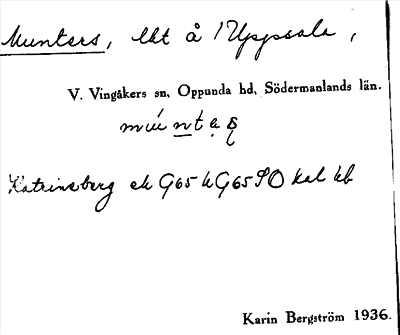 Munters, lht å /Uppsala,
V. Vingåkers sn, Oppunda hd, Södermanlands län.
Katrineberg ek G65 h G65 SO kal kb
Karin Bergström 1936.